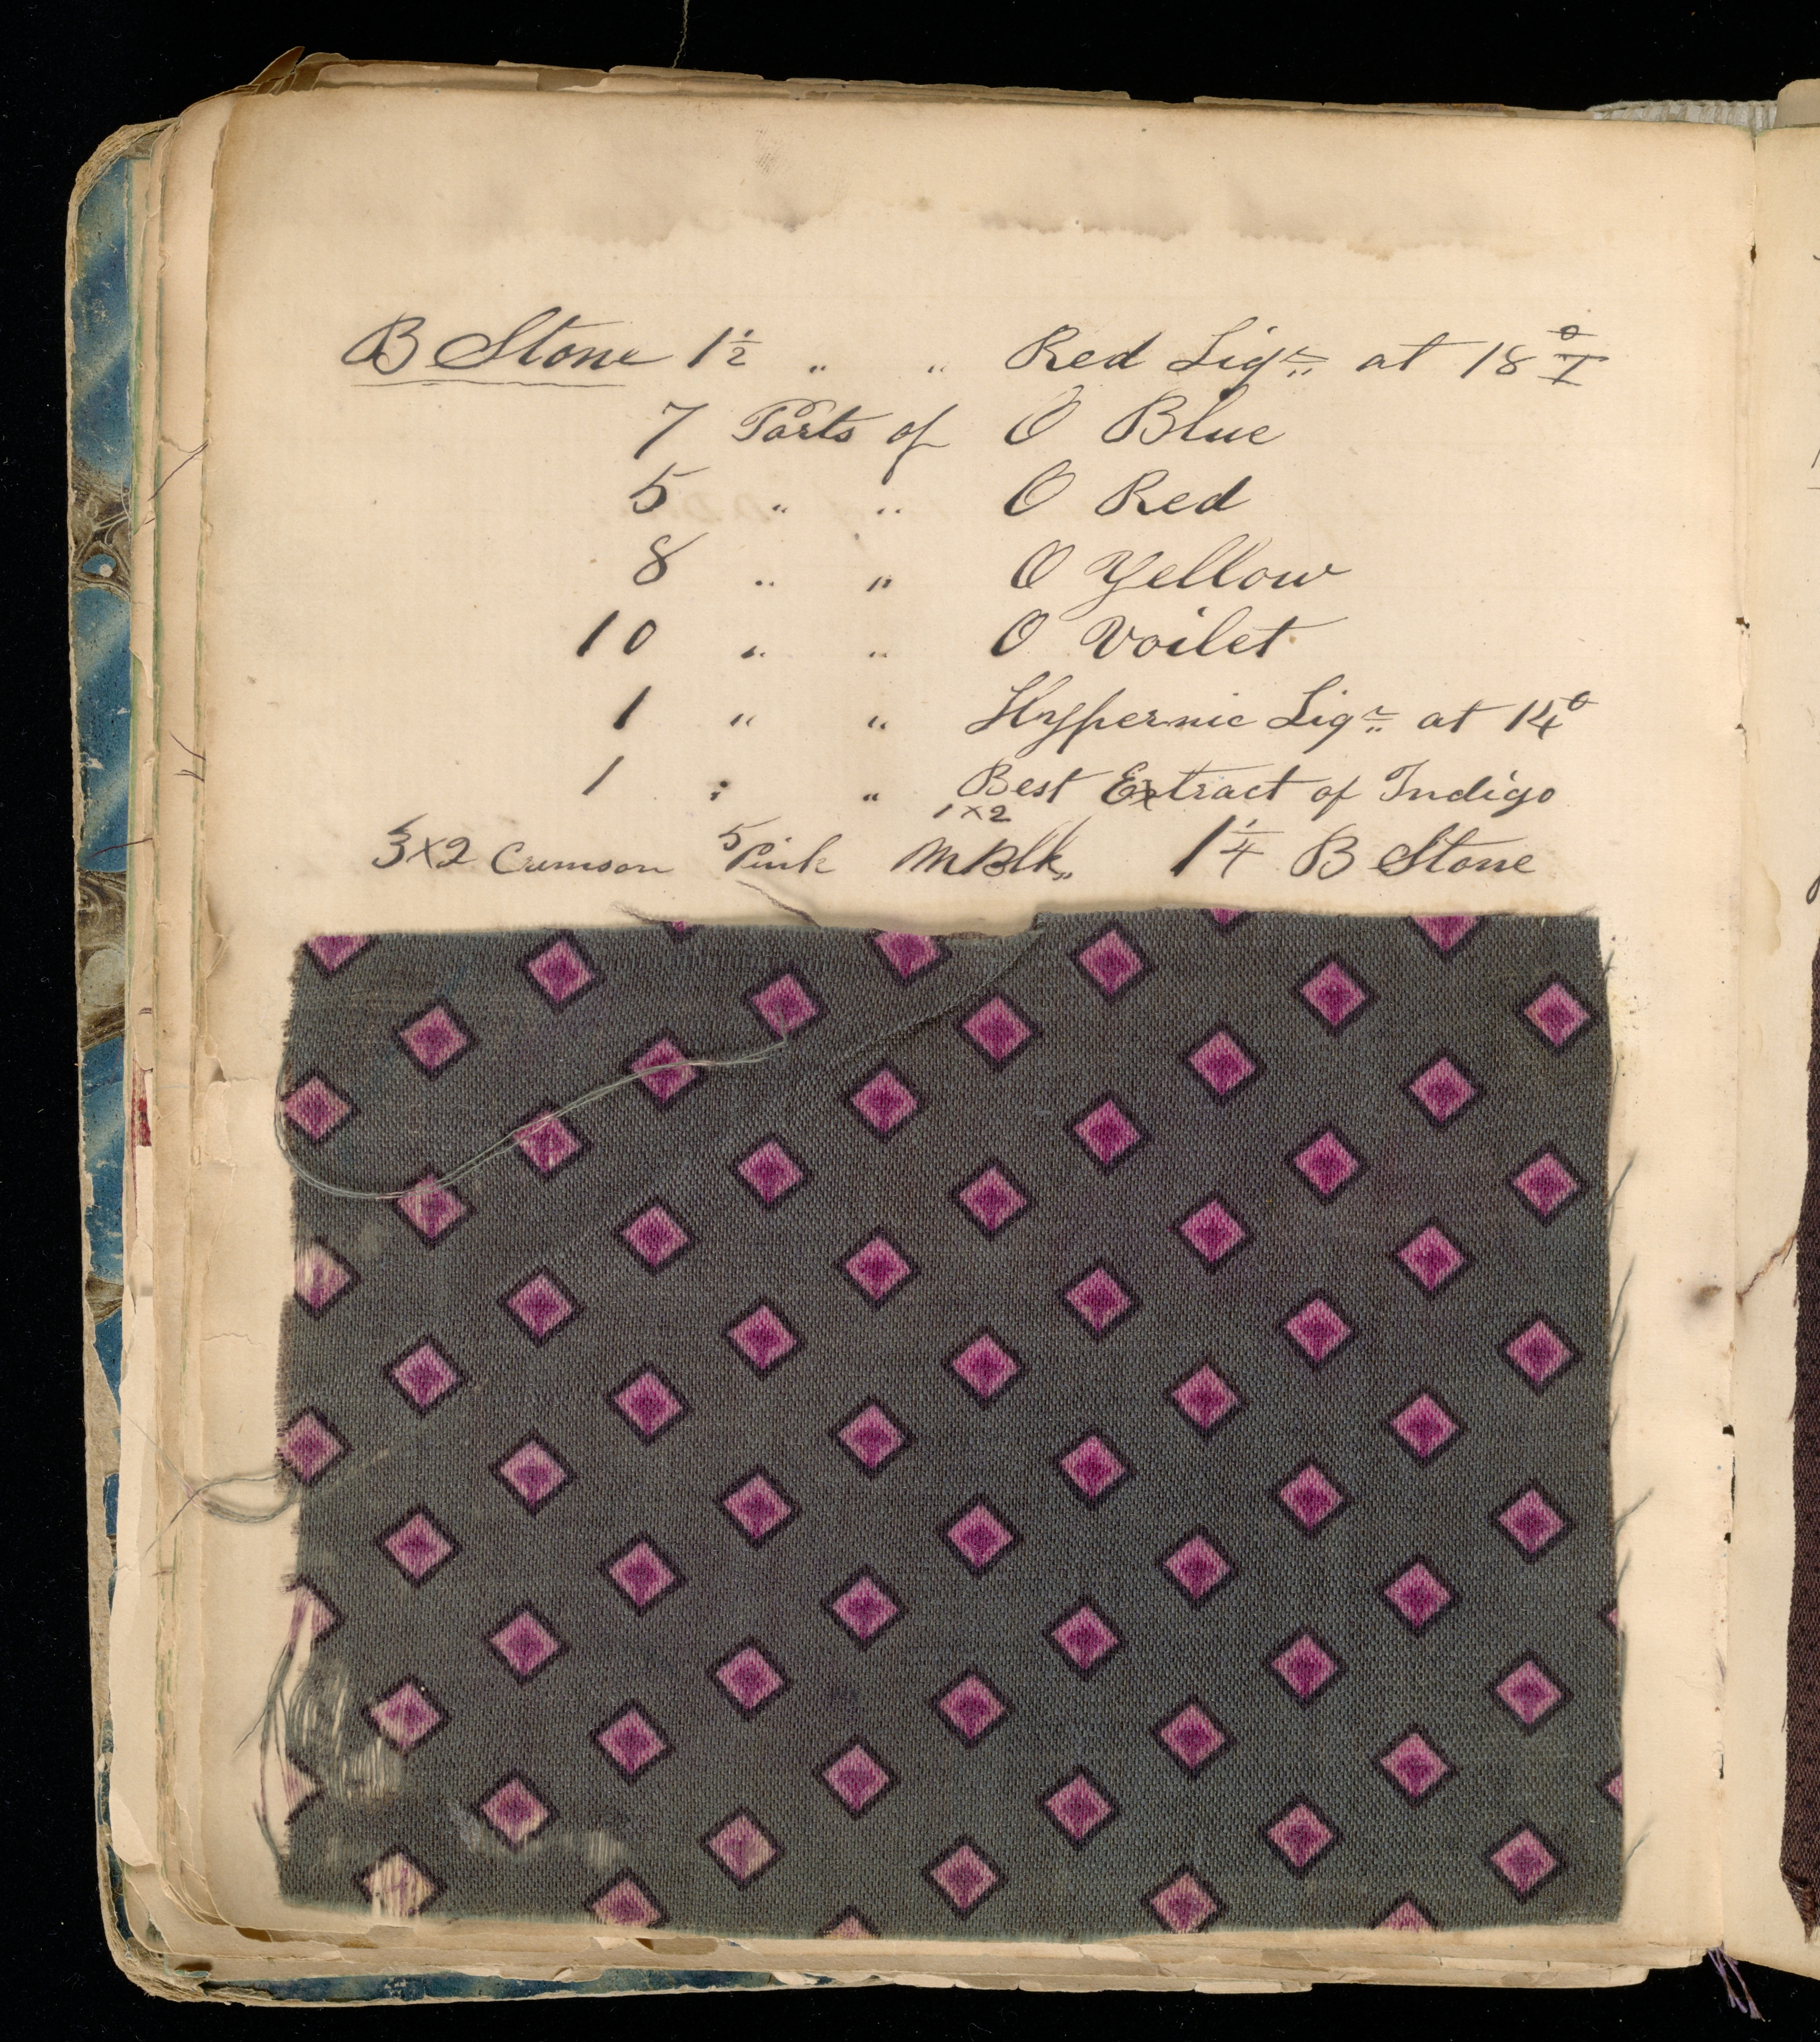 B Stone 1½ " " Red Liqr at 18° T
7 Parts of O Blue
5 " " O Red
8 " " O Yellow
10 " " O Voilet
1 " " Hypernic Liqr at 14°
1 " " Best Extract of Indigo
3x2 Crimson 5 Pink 1x2 M Blk 1¼ B Stone